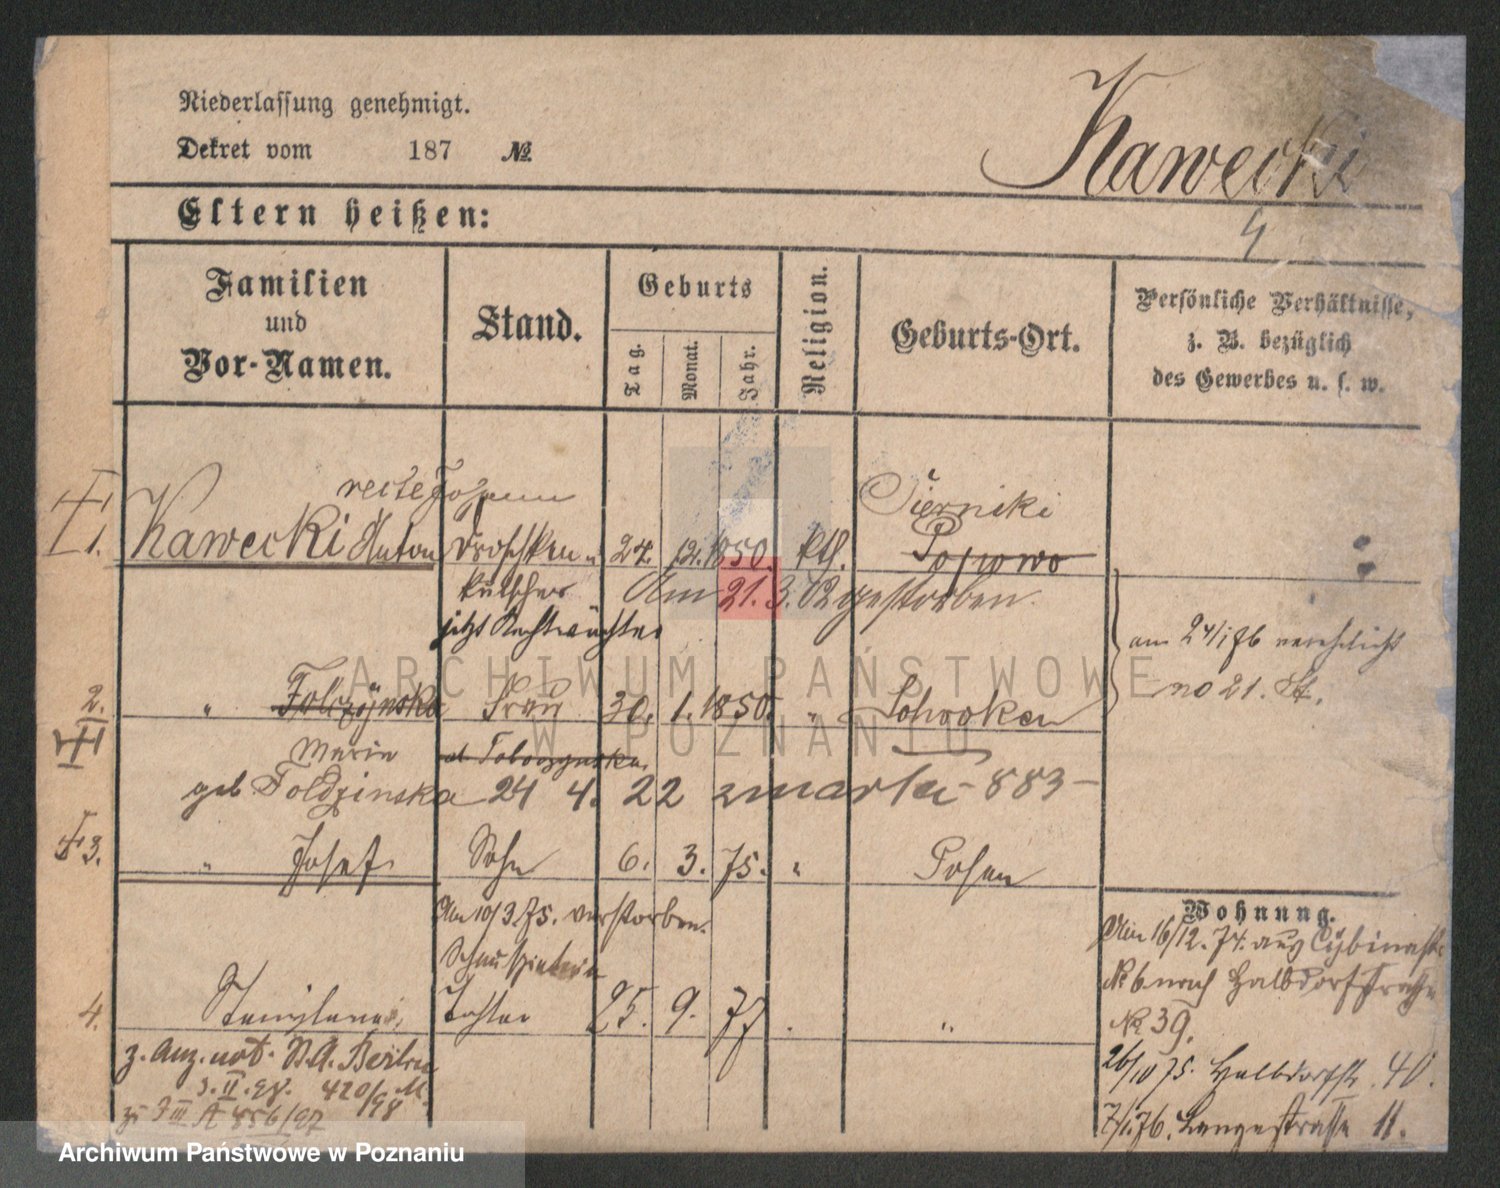 Niederlassung genehmigt.
Dekret vom 187 №
Kawecki
4
Eltern heißen:
Familien
und
Vor-Namen.
Stand.
Geburts
Tag.
Monat.
Jahr.
Religion.
Geburts-Ort.
Persönliche Verhältnisse,
z. B. bezüglich
des Gewerbes u. s. w.
recte Johann
Siernicki
1. Kawecki Anton Droschken- 24. 12. 1850. kth. Popowo
kutscher Am 21.3.02 gestorben.
jetzt Nachtwächter
am 24/1 76 verehelicht
no 21. St.
2. " Frau 30. 1. 1850. "
Marie
geb 24 4. 22 883
3. " Josef. Sohn 6. 3. 75. " Posen
Am 10/3 75. verstorben.
Wohnung.
Am 16/12. 74. aus Cybinastr
№ 6 nach Halbdorfstrasse
№ 39.
4. Tochter 25. 9. 77 . "
26/10 75. Halbdorfstr. 40.
z. Anz. not. St.A. Berlin
3. II. 98. 420/98 M.
zu III A 856/97
7/1.76. Langestrasse 11.
ARCHIWUM PAŃSTWOWE
W POZNANIU
Archiwum Państwowe w Poznaniu